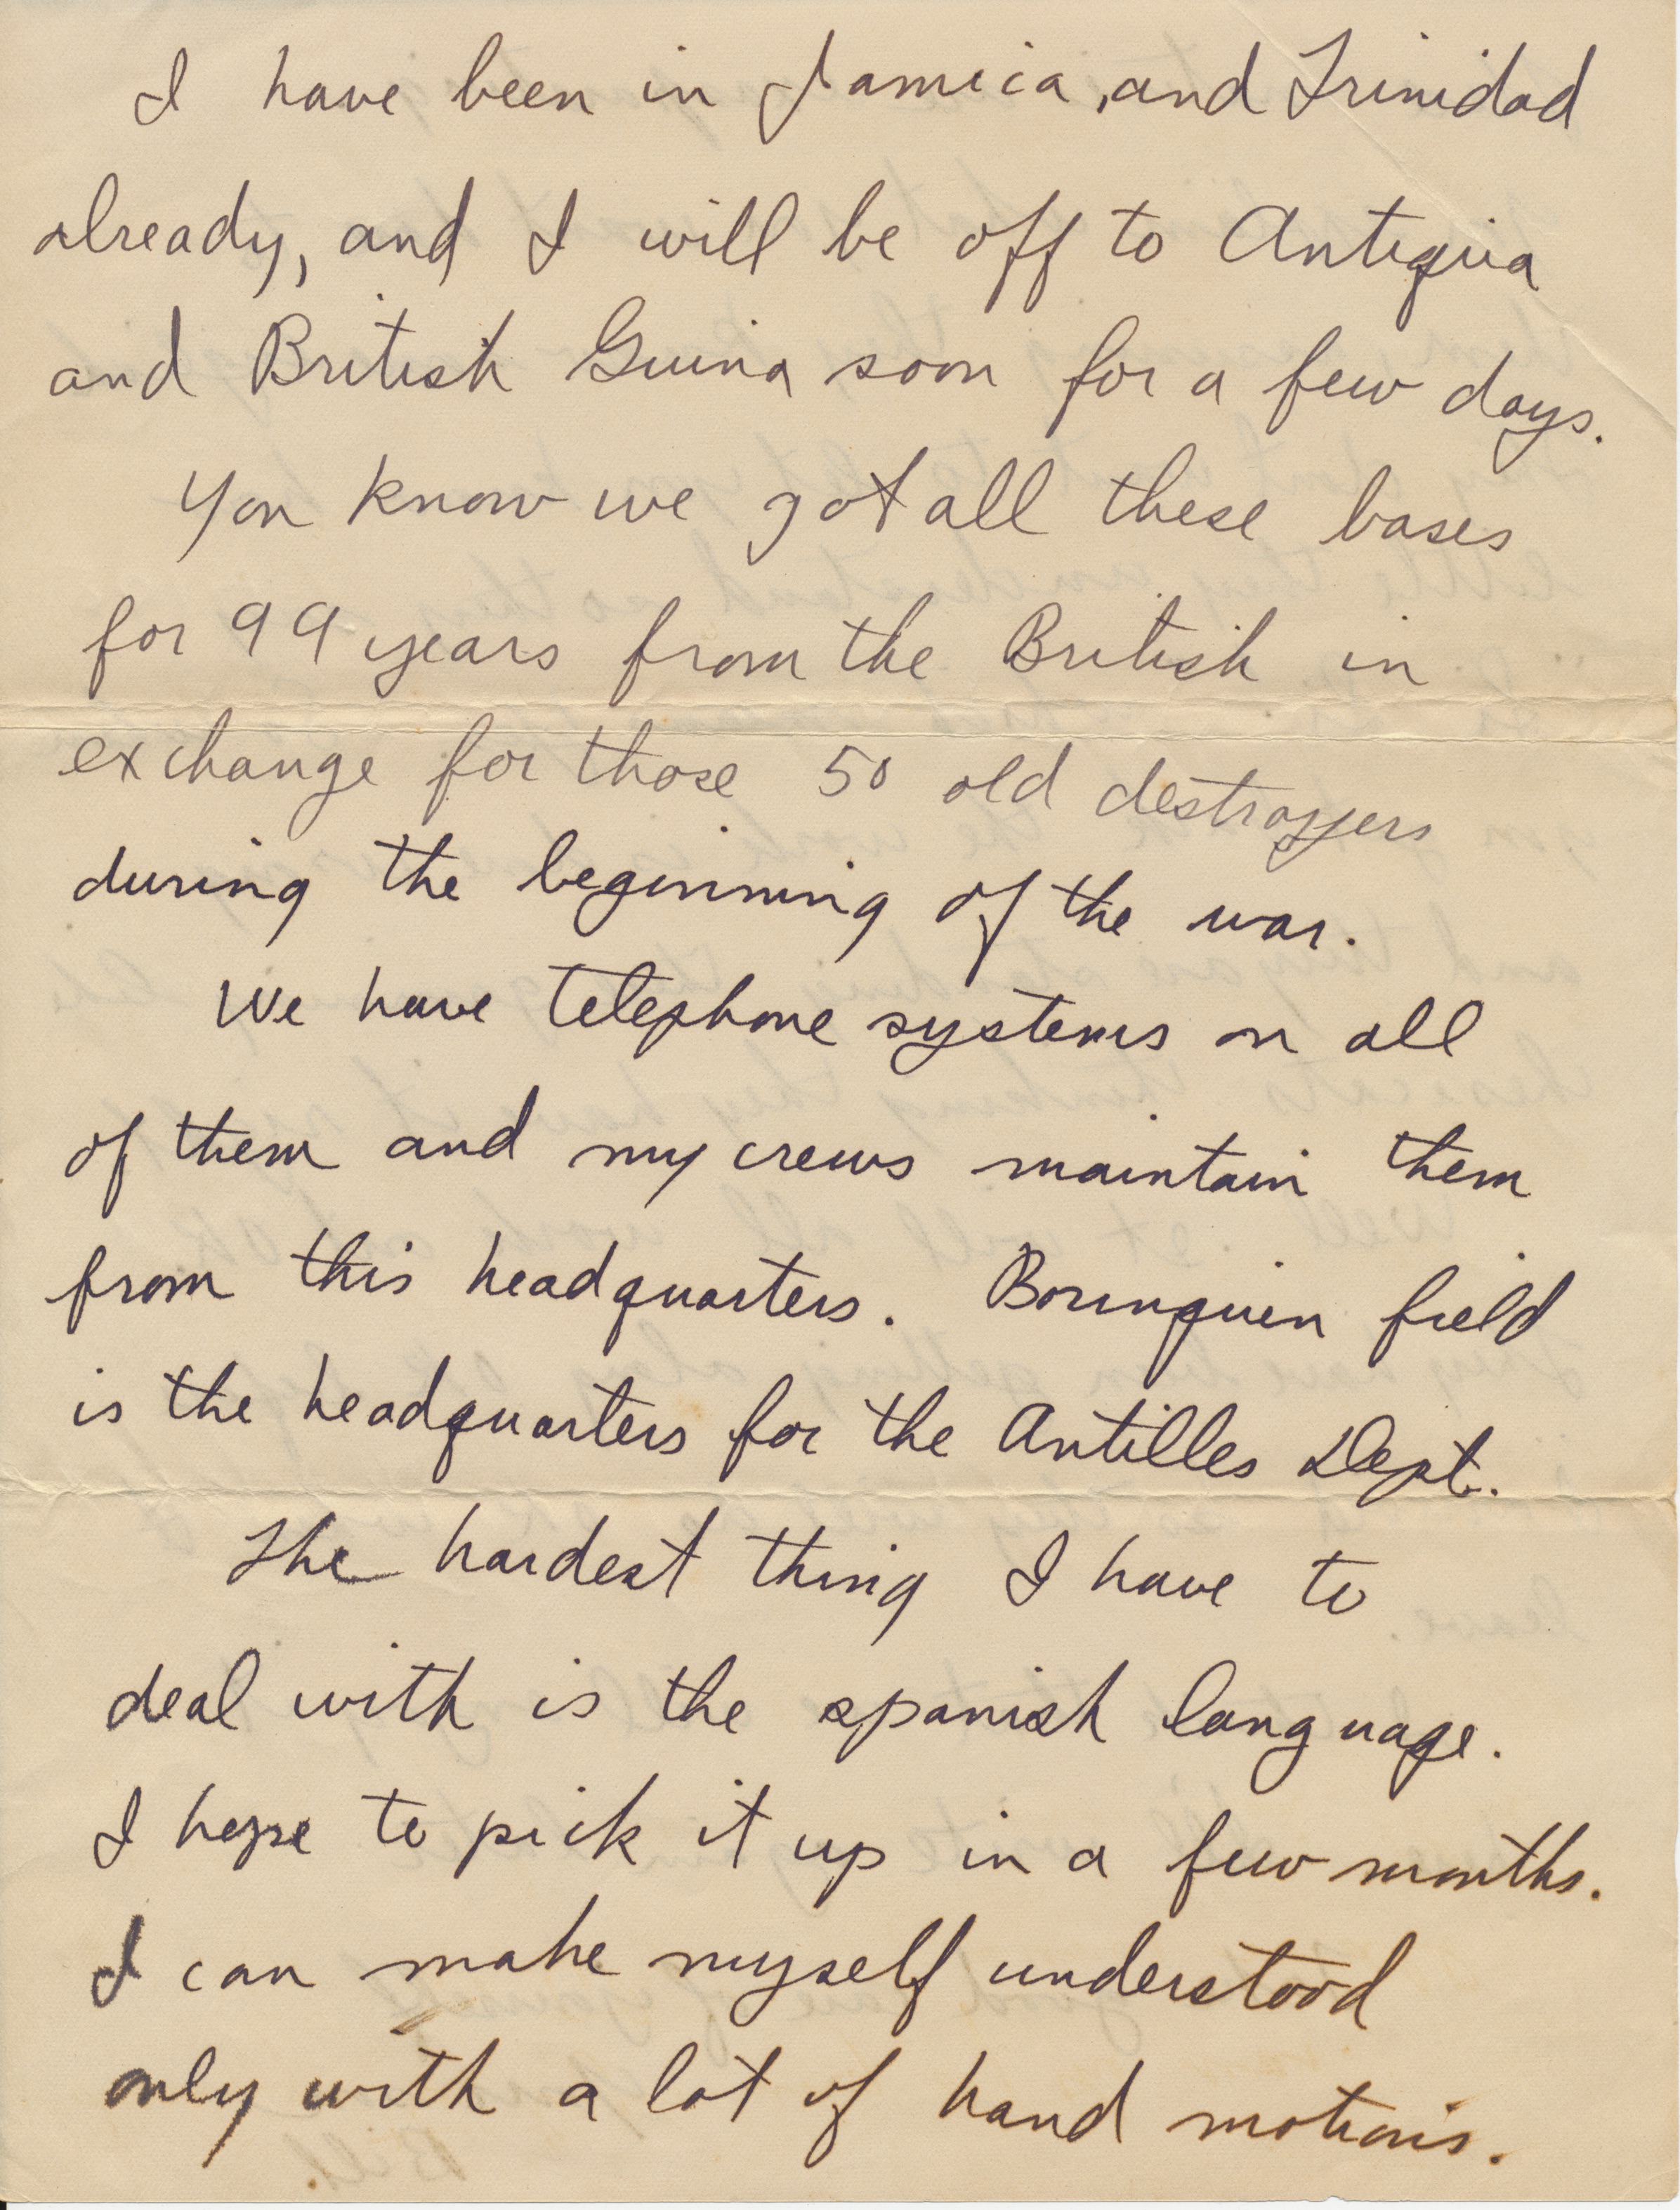 I have been in Jamica, and Trinidad
already, and I will be off to Antiqua
and British Guina soon for a few days.
You know we got all these bases
for 99 years from the British in
exchange for those 50 old destroyers
during the beginning of the war.
We have telephone systems on all
of them and my crews maintain them
from this headquarters. Borinquen field
is the headquarters for the Antilles Dept.
The hardest thing I have to
deal with is the spanish language.
I hope to pick it up in a few months.
I can make myself understood
only with a lot of hand motions.